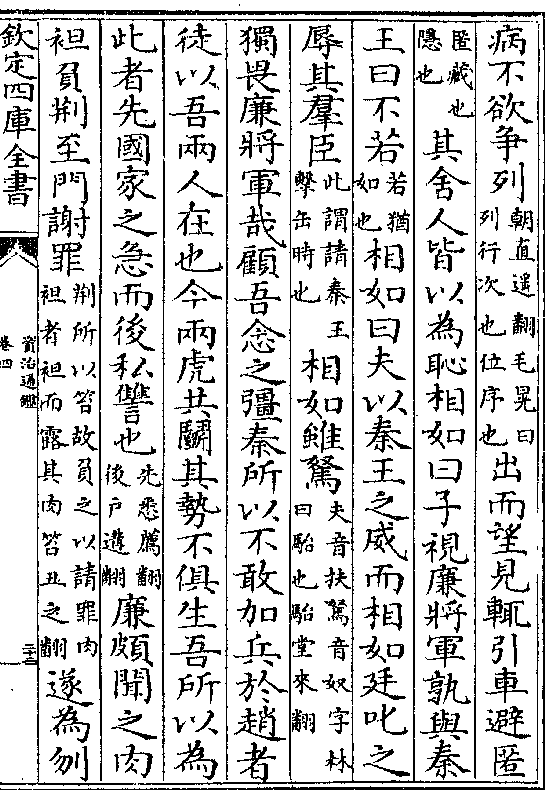 病不欲争列朝直遥翻毛晃曰列行次也位序也出而望見輒引車避匿
匿藏也隱也其舍人皆以為恥相如曰子視廉將軍孰與秦
王曰不若若猶如也相如曰夫以秦王之威而相如廷叱之
辱其羣臣此謂請秦王擊缶時也相如雖駑夫音扶駑音奴字林曰駘也駘堂來翻
獨畏廉將軍哉顧吾念之彊秦所以不敢加兵於趙者
徒以吾兩人在也今兩虎共鬭其勢不俱生吾所以為
此者先國家之急而後私讐也先悉薦翻後戶遘翻廉頗聞之肉
袒負荆至門謝罪荆所以笞故負之以請罪肉袒者袒而露其肉笞丑之翻遂為刎
欽定四庫全書
資治通鑑
卷四
二十三